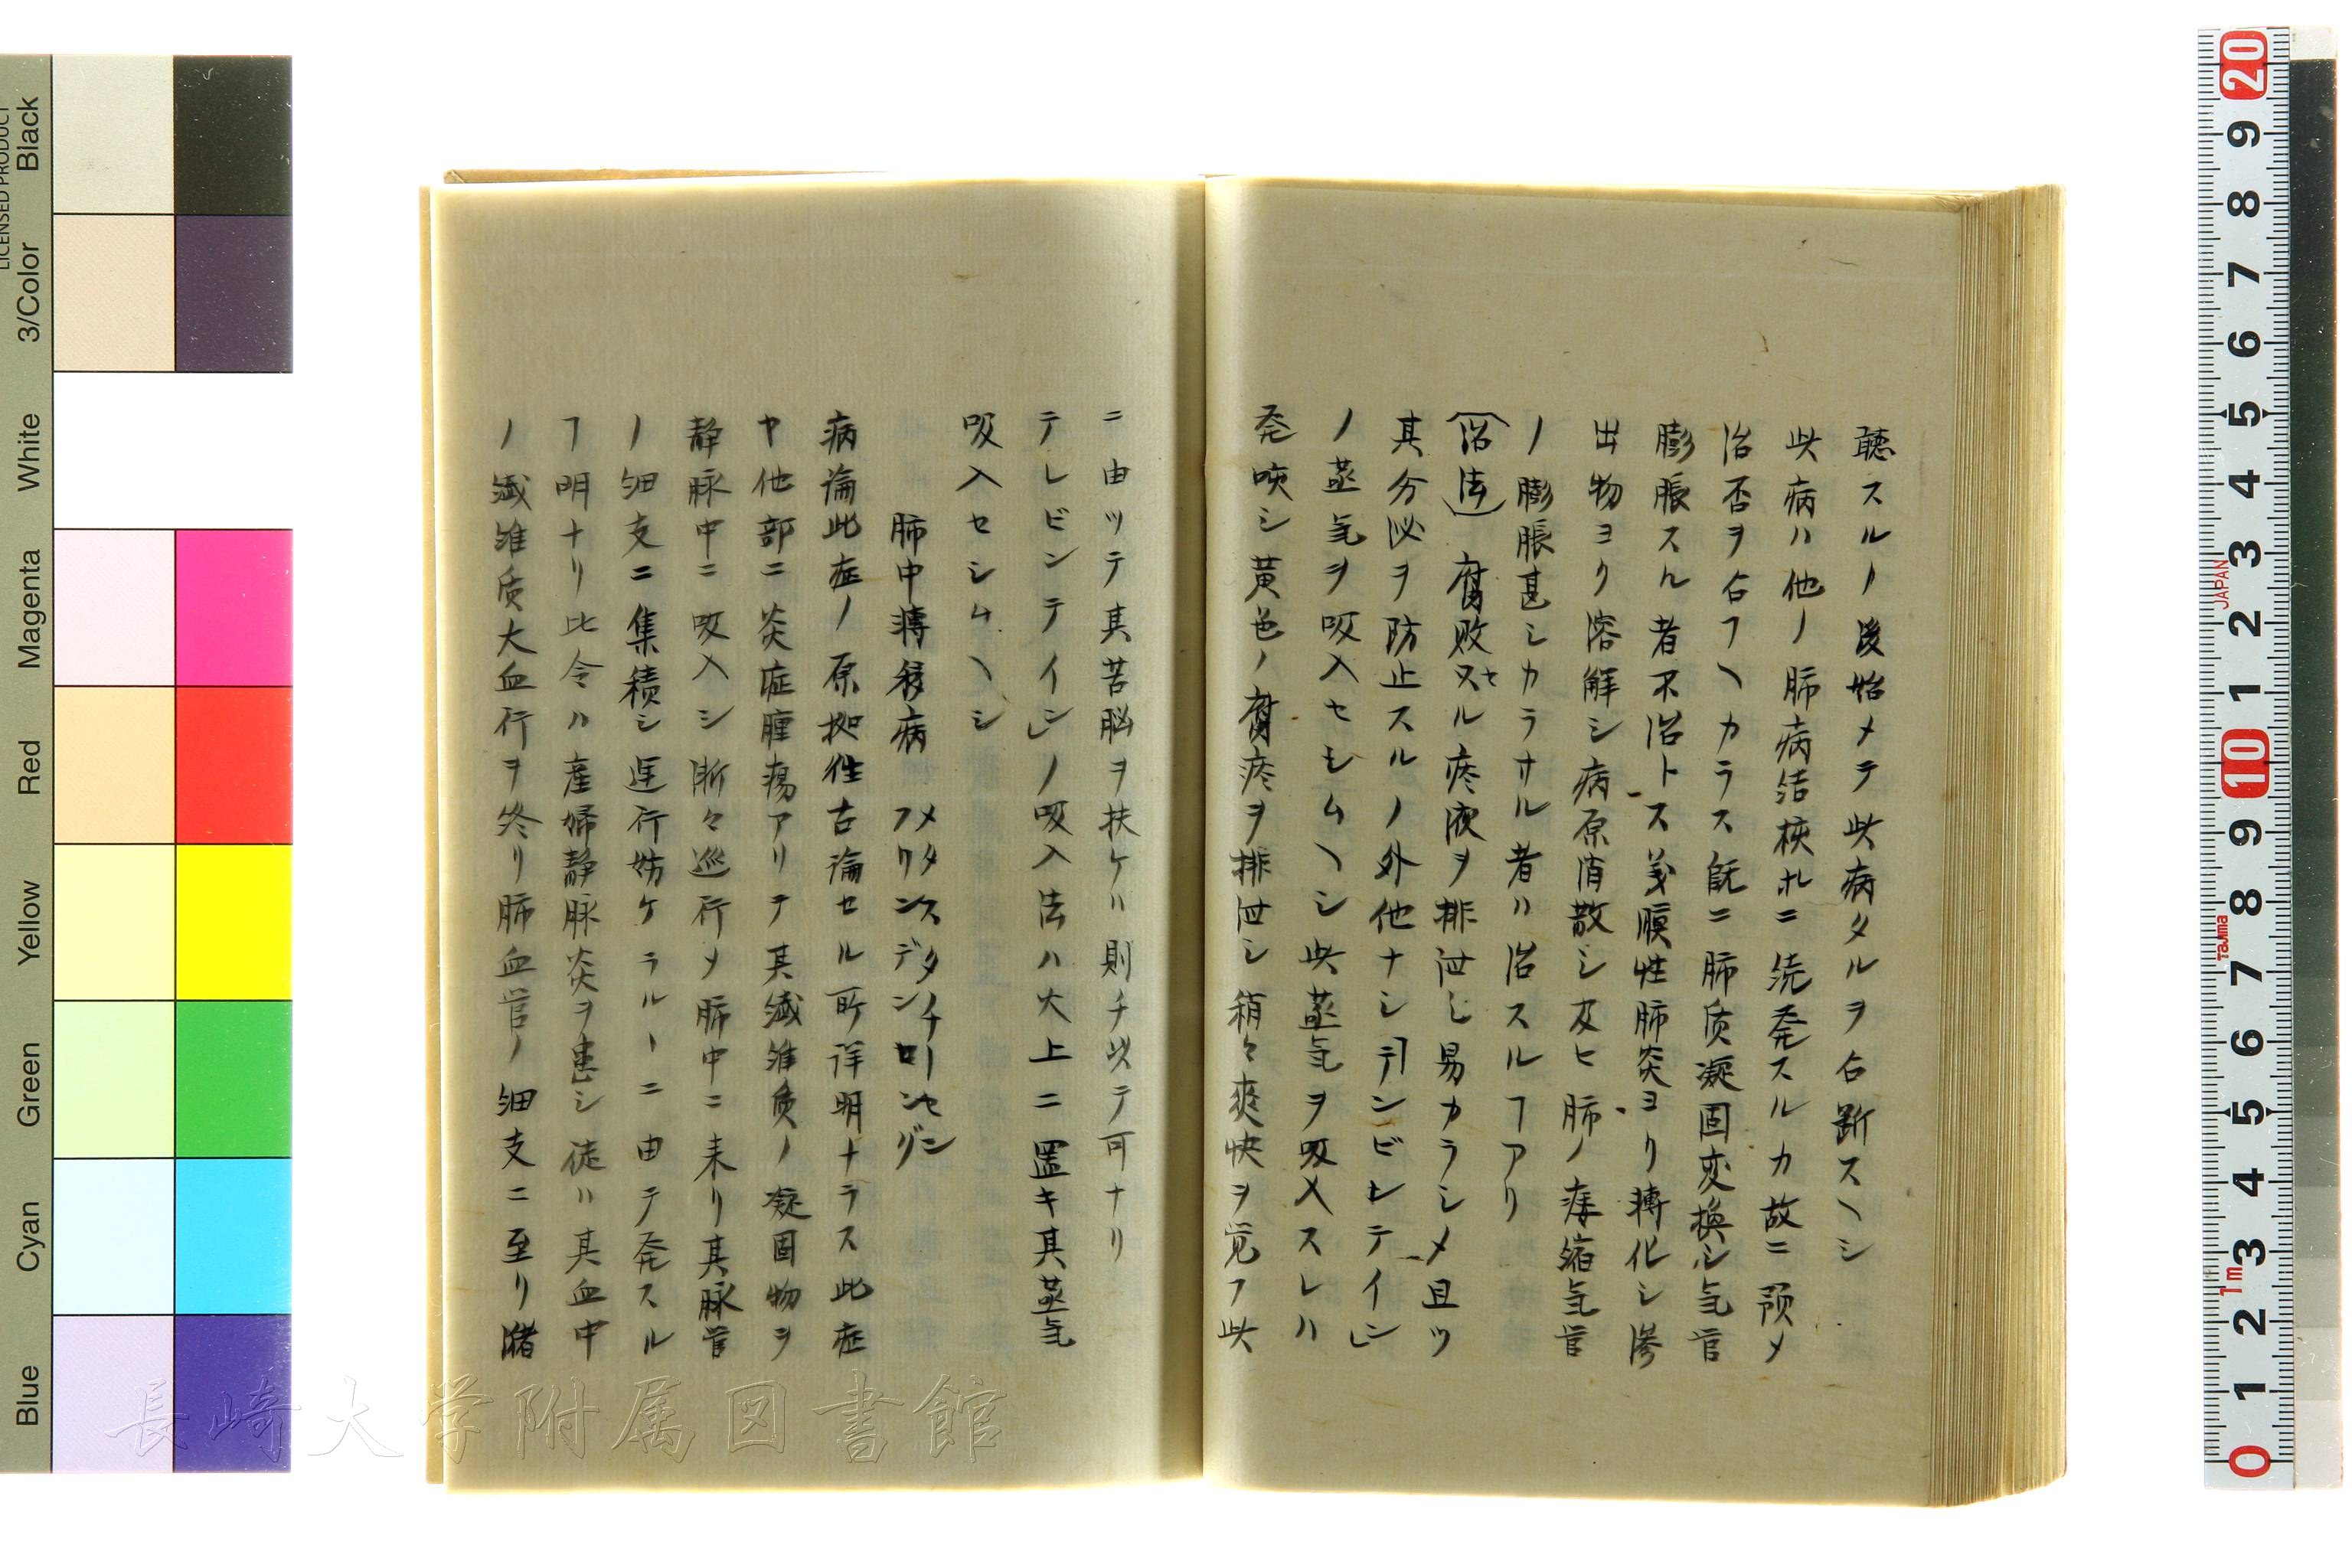 聴スルノ後始メテ此病タルヲ占断スヘシ
此病ハ他ノ肺病結核ホニ続発スルカ故ニ預メ
治否ヲ占フヘカラス既ニ肺质凝固変換シ気官
膨脹スル者不治トス義膜性肺炎ヨリ轉化シ滲
出物ヨリ溶解シ病原消散シ及ヒ肺ノ痿縮気官
ノ膨脹甚シカラサル者ハ治スルヿアリ
治法 腐败セル疼液ヲ排泄シ易カラシメ且ツ
其分泌ヲ防止スルノ外他ナシ「テンビレテイン」
ノ蒸気ヲ吸入セシムヘシ此蒸気ヲ吸入スレハ
発咳シ黄色ノ腐疼ヲ排泄シ稍々爽快ヲ覚フ此
ニ由ツテ其苦脳ヲ扶ケハ則チ以テ可ナリ
テレビンテイン」ノ吸入法ハ火上ニ置キ其蒸気
吸入セシムヘシ
肺中轉移病 メタスターチーセン フリンデンロンゲン
病論此症ノ原拠往古論セル所详明ナラス此症
ヤ他部ニ炎症腫瘍アリテ其繊維质ノ凝固物ヲ
静脉中ニ吸入シ漸々巡行メ肺中ニ来リ其脉管
ノ细支ニ集積シ運行妨ケラルヽニ由テ発スル
ヿ明ナリ比令ハ産婦静脉炎ヲ患シ徒ハ其血中
ノ繊維质大血行ヲ終リ肺血管ノ细支ニ至リ潴
長崎大学附属図書館
Black
3/Color
White
Magenta
Red
Yellow
Green
Cyan
Blue
LICENSED PRODUCT
20
9
8
7
6
5
4
3
2
1
10
9
8
7
6
5
4
3
2
1
0
JAPAN
Tajima
1m